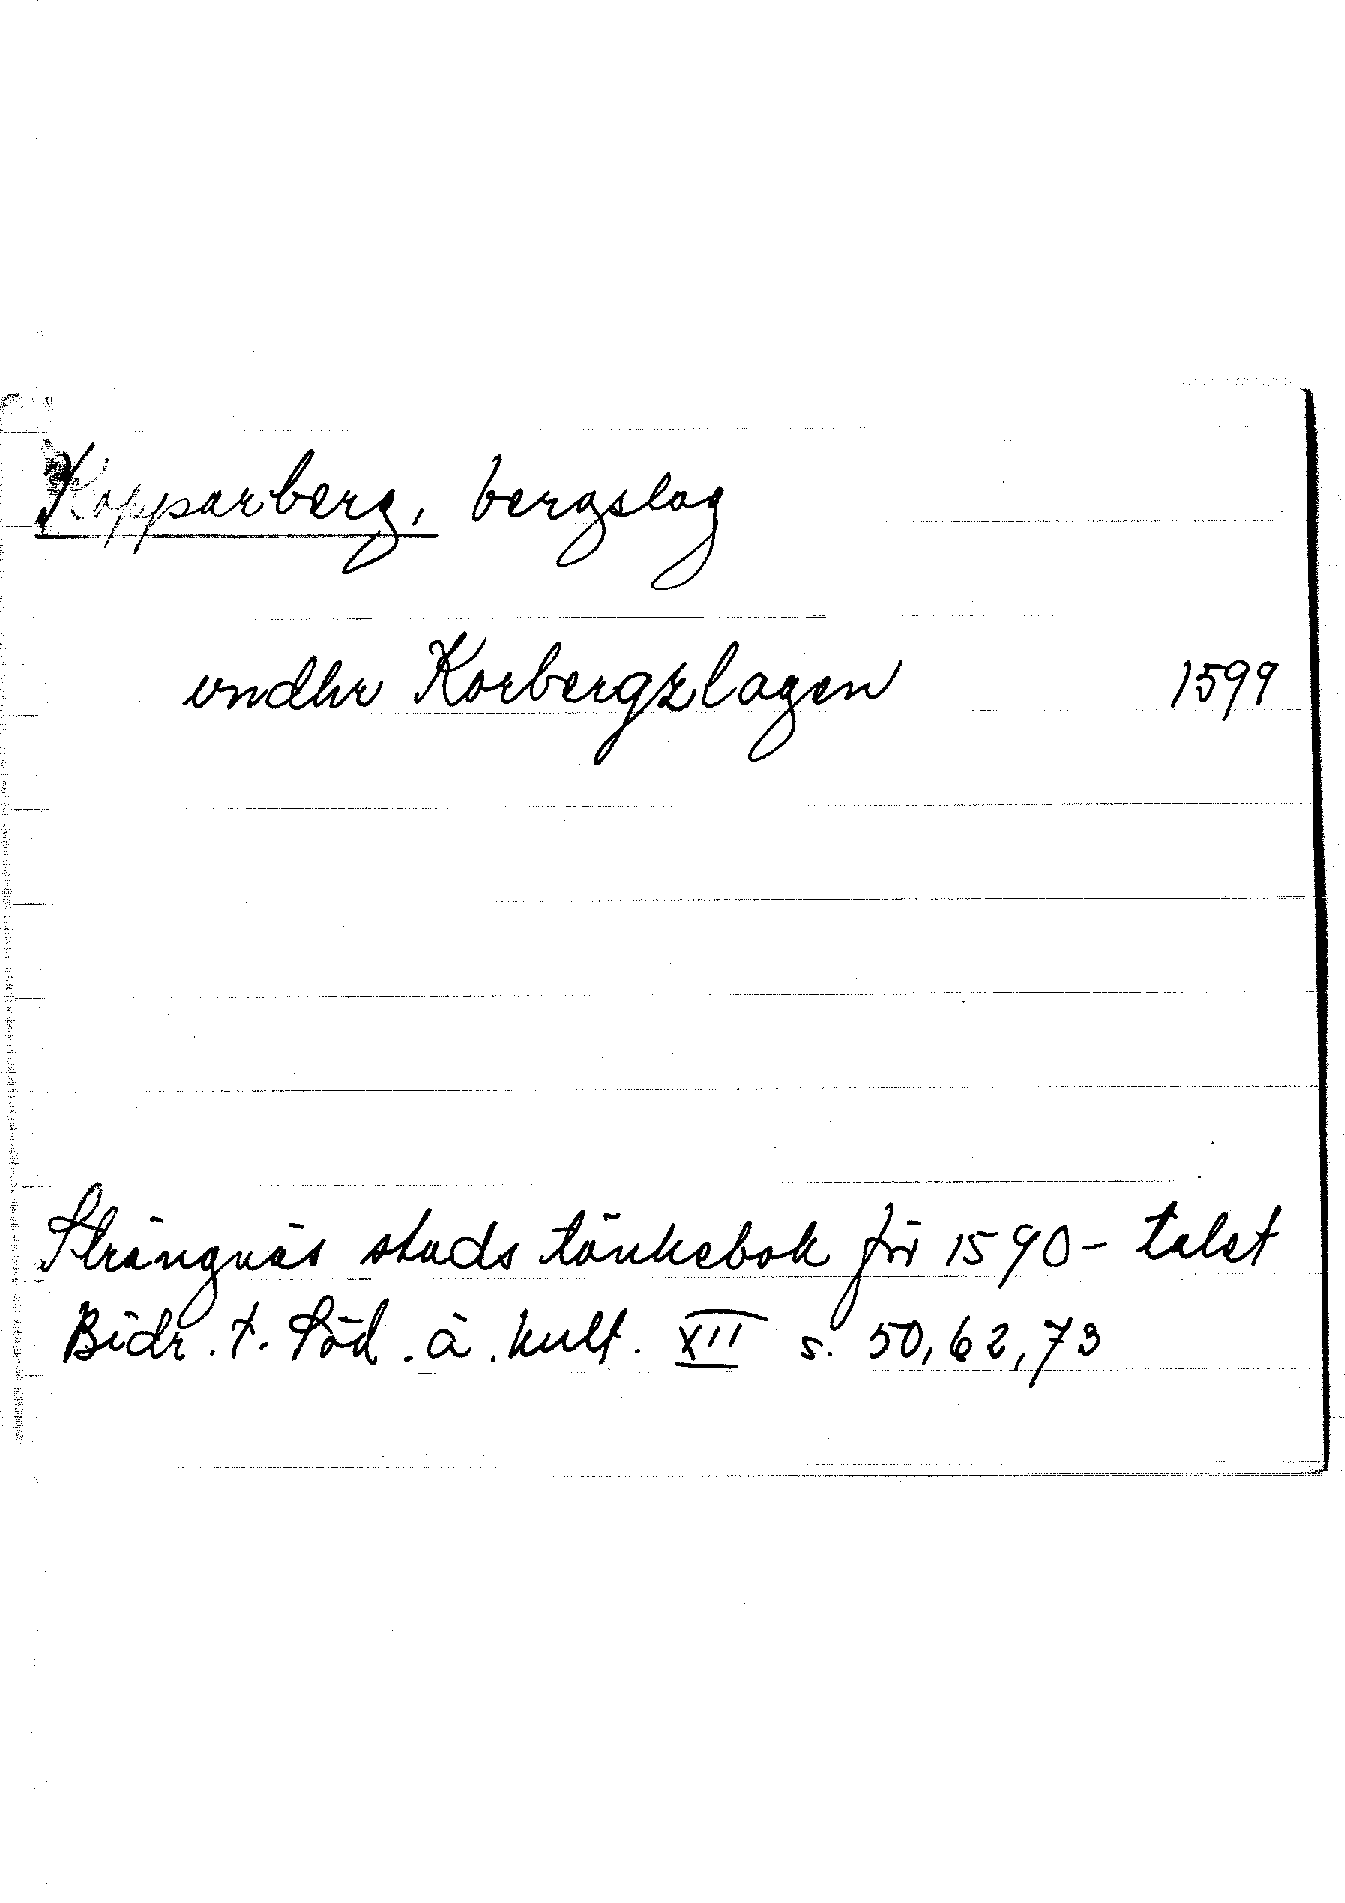 Kopparberg, bergslag
vndhr Korbergzlagen 1599
Strängnäs stads tänkebok för 1590-talet
Bidr. t. Söd. ä. kult. XII s. 50, 62, 73